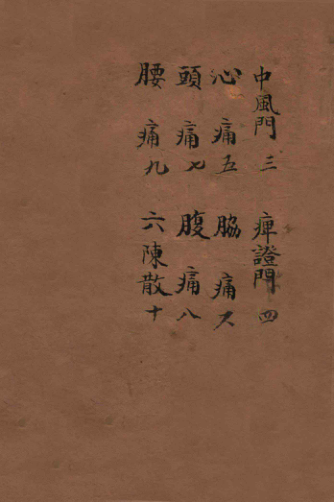 中風門三　痺證門四
心痛五　脇痛六
頭痛七　腹痛八
腰痛九　六陳散十